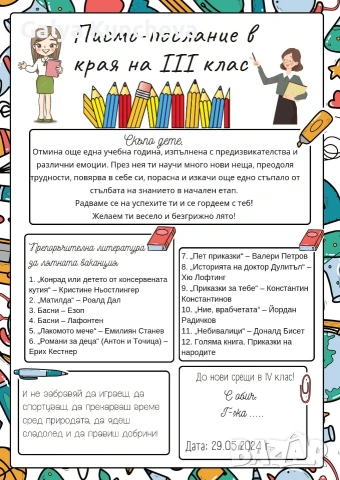 Писмо-послание в
края на III клас
Скъпо дете,
Отмина още една учебна година, изпълнена с предизвикателства и
различни емоции. През нея ти научи много нови неща, преодоля
трудности, повярва в себе си, порасна и изкачи още едно стъпало от
стълбата на знанието в начален етап.
Радваме се на успехите ти и се гордеем с теб!
Желаем ти весело и безгрижно лято!
Препоръчителна литература
за лятната ваканция:
1. „Конрад или детето от консервената
кутия“ – Кристине Ньостлингер
2. „Матилда“ – Роалд Дал
3. Басни – Езоп
4. Басни – Лафонтен
5. „Лакомото мече“ – Емилиян Станев
6. „Романи за деца“ (Антон и Точица) –
Ерих Кестнер
7. „Пет приказки“ – Валери Петров
8. „Историята на доктор Дулитъл“ –
Хю Лофтинг
9. „Приказки за тебе“ – Константин
Константинов
10. „Ние, врабчетата“ – Йордан
Радичков
11. „Небивалици“ – Доналд Бисет
12. Голяма книга. Приказки на
народите
И не забравяй да играеш, да
спортуваш, да прекарваш време
сред природата, да ядеш
сладолед и да правиш добрини!
До нови срещи в IV клас!
С обич:
Г-жа .....
Дата: 29.05.2024 г.
BAZAR